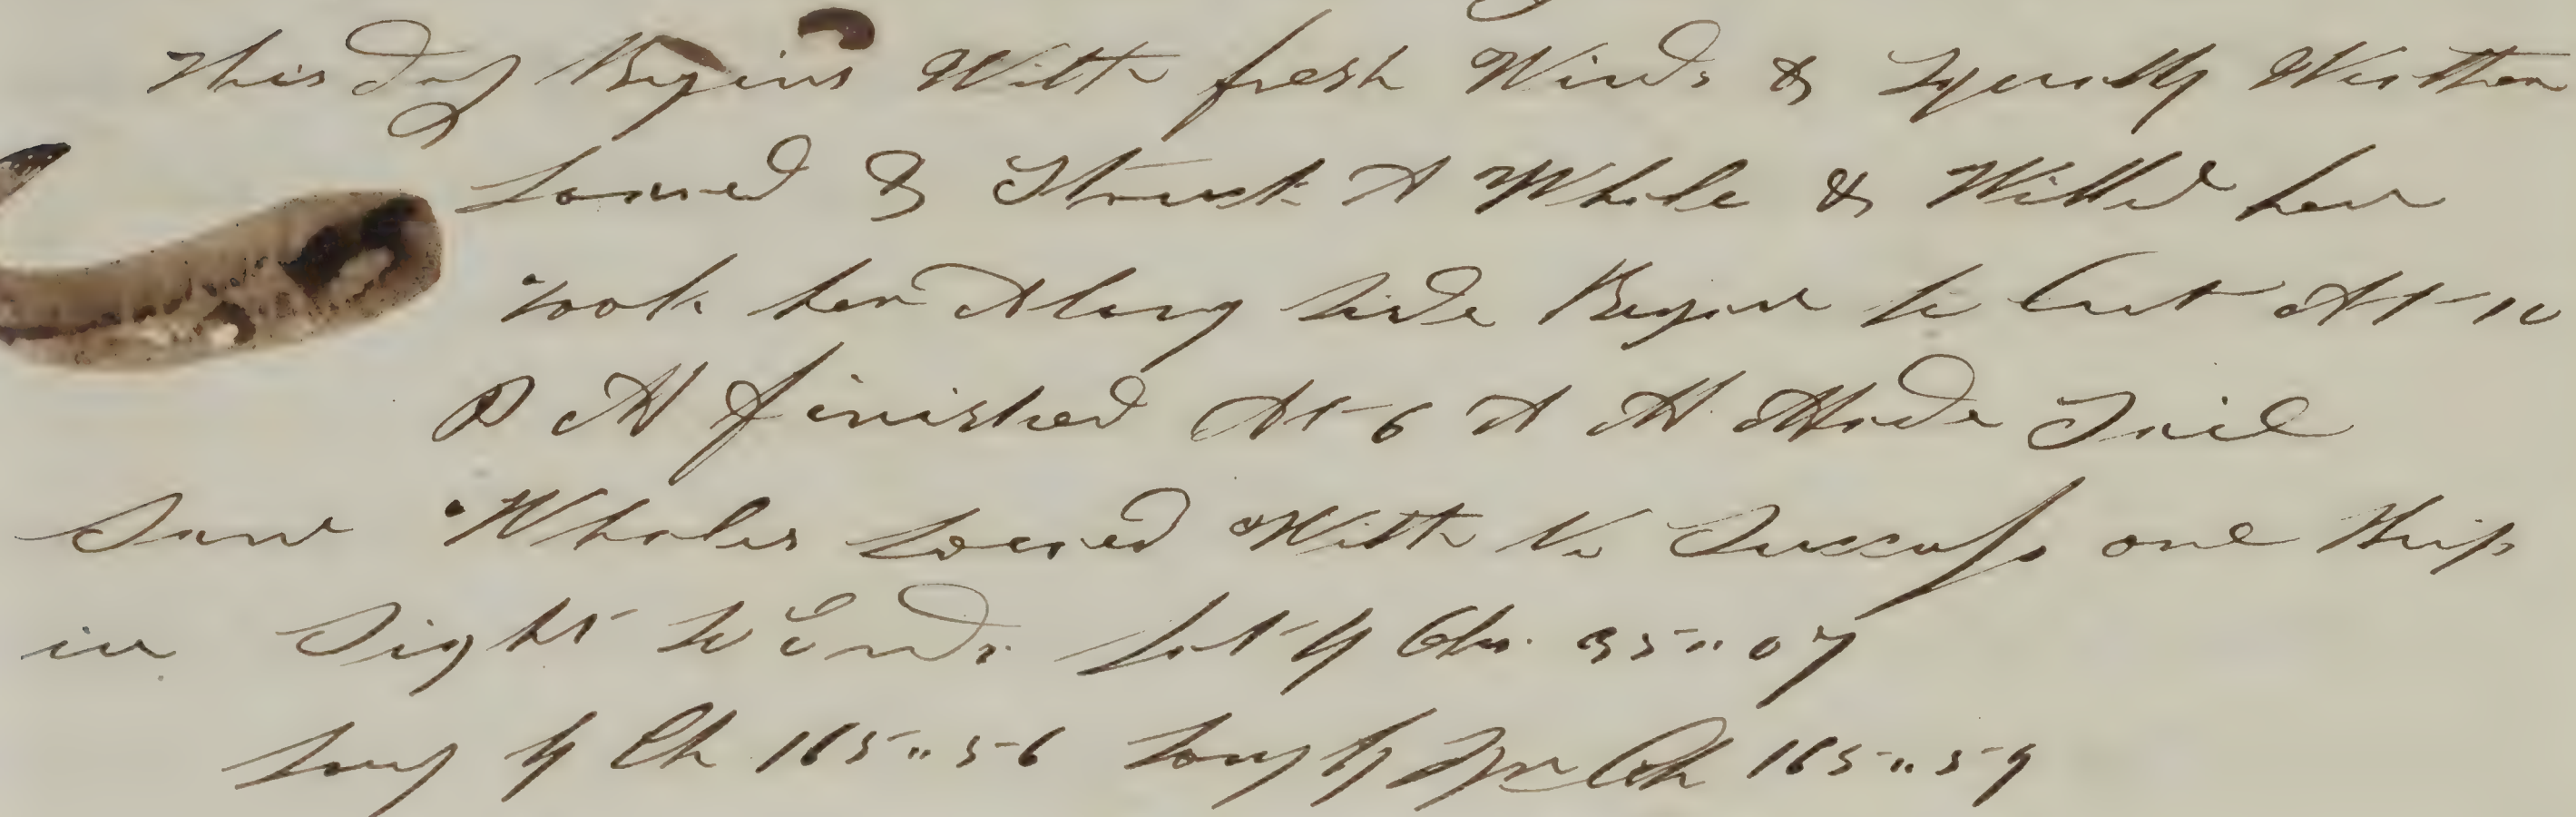 This day Begins With fresh Winds & Squally Wether
Lowred & Struck A Whale & Killd her
took her Along Side Began to Cut At 10
P M finished At 6 A M Made Sail
Saw Whales Lowred With No Success one Ship
in Sight So Ends Lat by Obs. 35 " 07
Long by Ch 165 " 56 Long by Ch 165 " 59